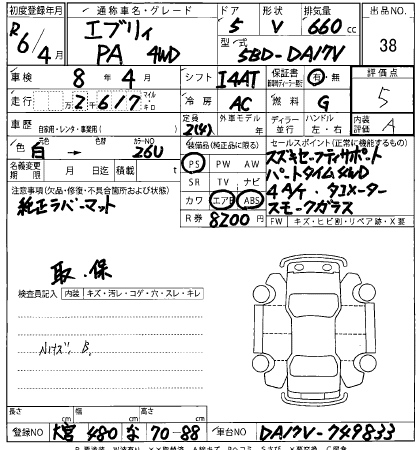 初度登録年月 通称車名・グレード ドア 形状 排気量 出品NO.
R6/4月 エブリィ 5 V 660cc 38
PA 4WD 型式 5BD-DA17V
車検 8年4月 シフト I4AT 保証書 有・無 評価点
走行 2617 マイル キロ 冷房 AC 燃料 G 5
車歴 自家用・レンタ・事業用( ) 定員 2(4) 外車モデル 年 ディーラー 並行 ハンドル 左・右 内装 A
色 元色 白 → 色替 カラーNO 26U 装備品(純正品に限る) セールスポイント(正常に機能するもの)
名義変更期限 月 日迄 積載 t PS PW AW スズキセーフティサポート
注意事項(欠品・修復・不具合箇所および状態) SR TV ナビ パートタイム4WD
純正ラバーマット カワ エアB ABS 4AT・タコメーター
R券 8200 スモークガラス
FW キズ・ヒビ割・リペア跡・X要
取・保
検査員記入 内装 キズ・汚レ・コゲ・穴・スレ・キレ
長さ cm 幅 cm 高さ cm
登録NO 大宮 480 な 70-88 車台NO DA17V-749833